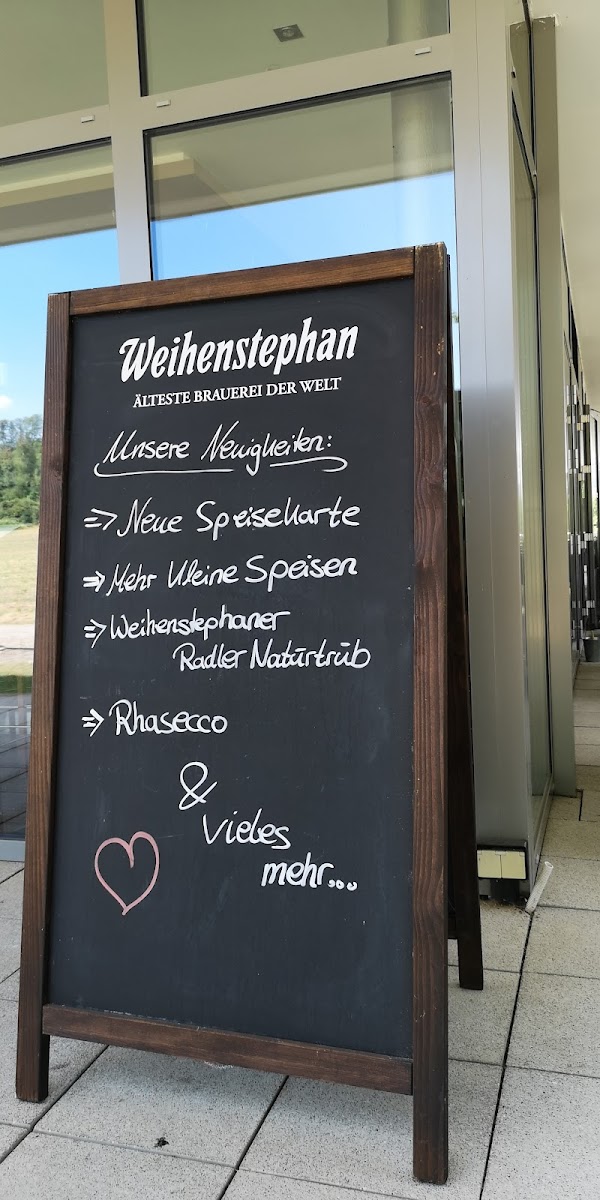 Weihenstephan
ÄLTESTE BRAUEREI DER WELT
Unsere Neuigkeiten:
=> Neue Speisekarte
=> Mehr kleine Speisen
=> Weihenstephaner
Radler Naturtrüb
=> Rhasecco
&
vieles
mehr...